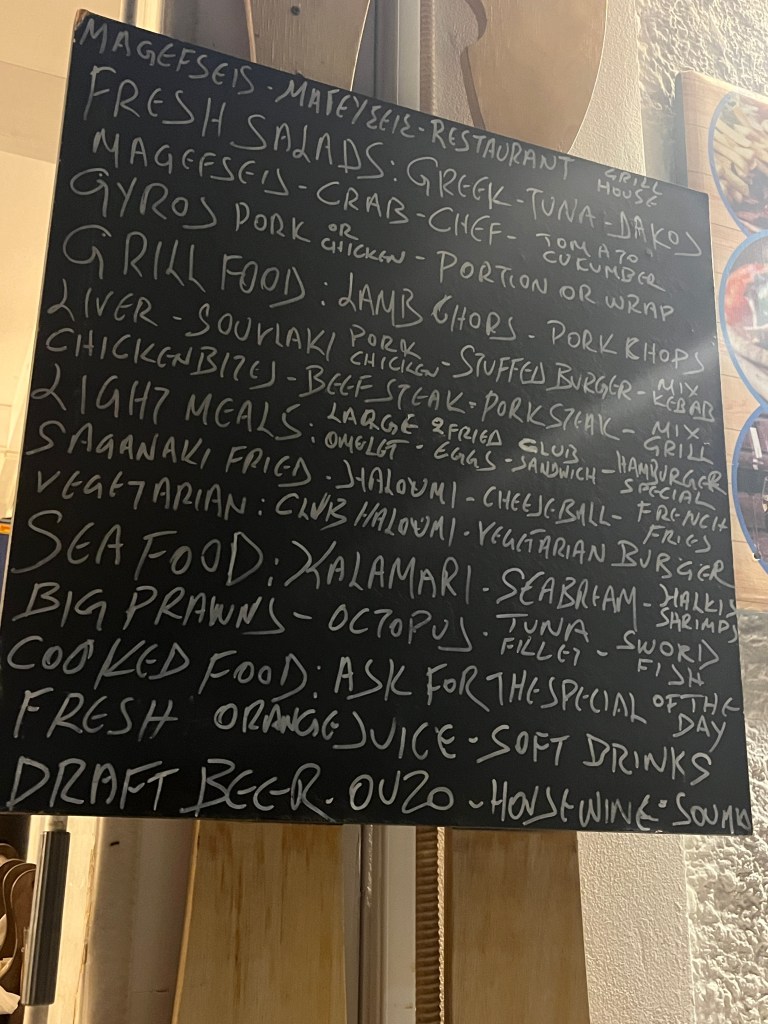 MAGEFSEIS - ΜΑΓΕΥΣΕΙΣ - RESTAURANT GRILL HOUSE
FRESH SALADS: GREEK - TUNA - DAKOS
MAGEFSEIS - CRAB - CHEF - TOMATO CUCUMBER
GYROS PORK OR CHICKEN - PORTION OR WRAP
GRILL FOOD: LAMB CHOPS - PORK CHOPS
LIVER - SOUVLAKI PORK CHICKEN - STUFFED BURGER - MIX KEBAB
CHICKEN BITES - BEEF STEAK - PORK STEAK - MIX GRILL
LIGHT MEALS: LARGE OMELET - 2 FRIED EGGS - CLUB SANDWICH - HAMBURGER SPECIAL
SAGANAKI FRIED - HALOUMI - CHEESEBALL - FRENCH FRIES
VEGETARIAN: CLUB HALOUMI - VEGETARIAN BURGER
SEA FOOD: KALAMARI - SEABREAM - HALKIS SHRIMPS
BIG PRAWNS - OCTOPUS - TUNA FILLET - SWORD FISH
COOKED FOOD: ASK FOR THE SPECIAL OF THE DAY
FRESH ORANGE JUICE - SOFT DRINKS
DRAFT BEER - OUZO - HOUSE WINE - SOUMA